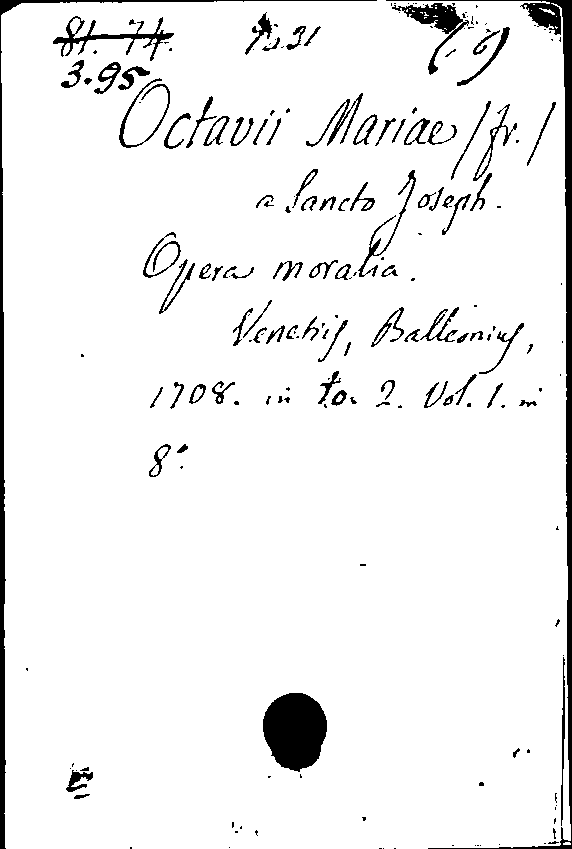 81. 74.
3.95
Octavii Mariae /fr./
a Sancto Joseph.
Opera moralia.
Venetiis, Balleonius,
1708. in to. 2. Vol. 1. in
8°.